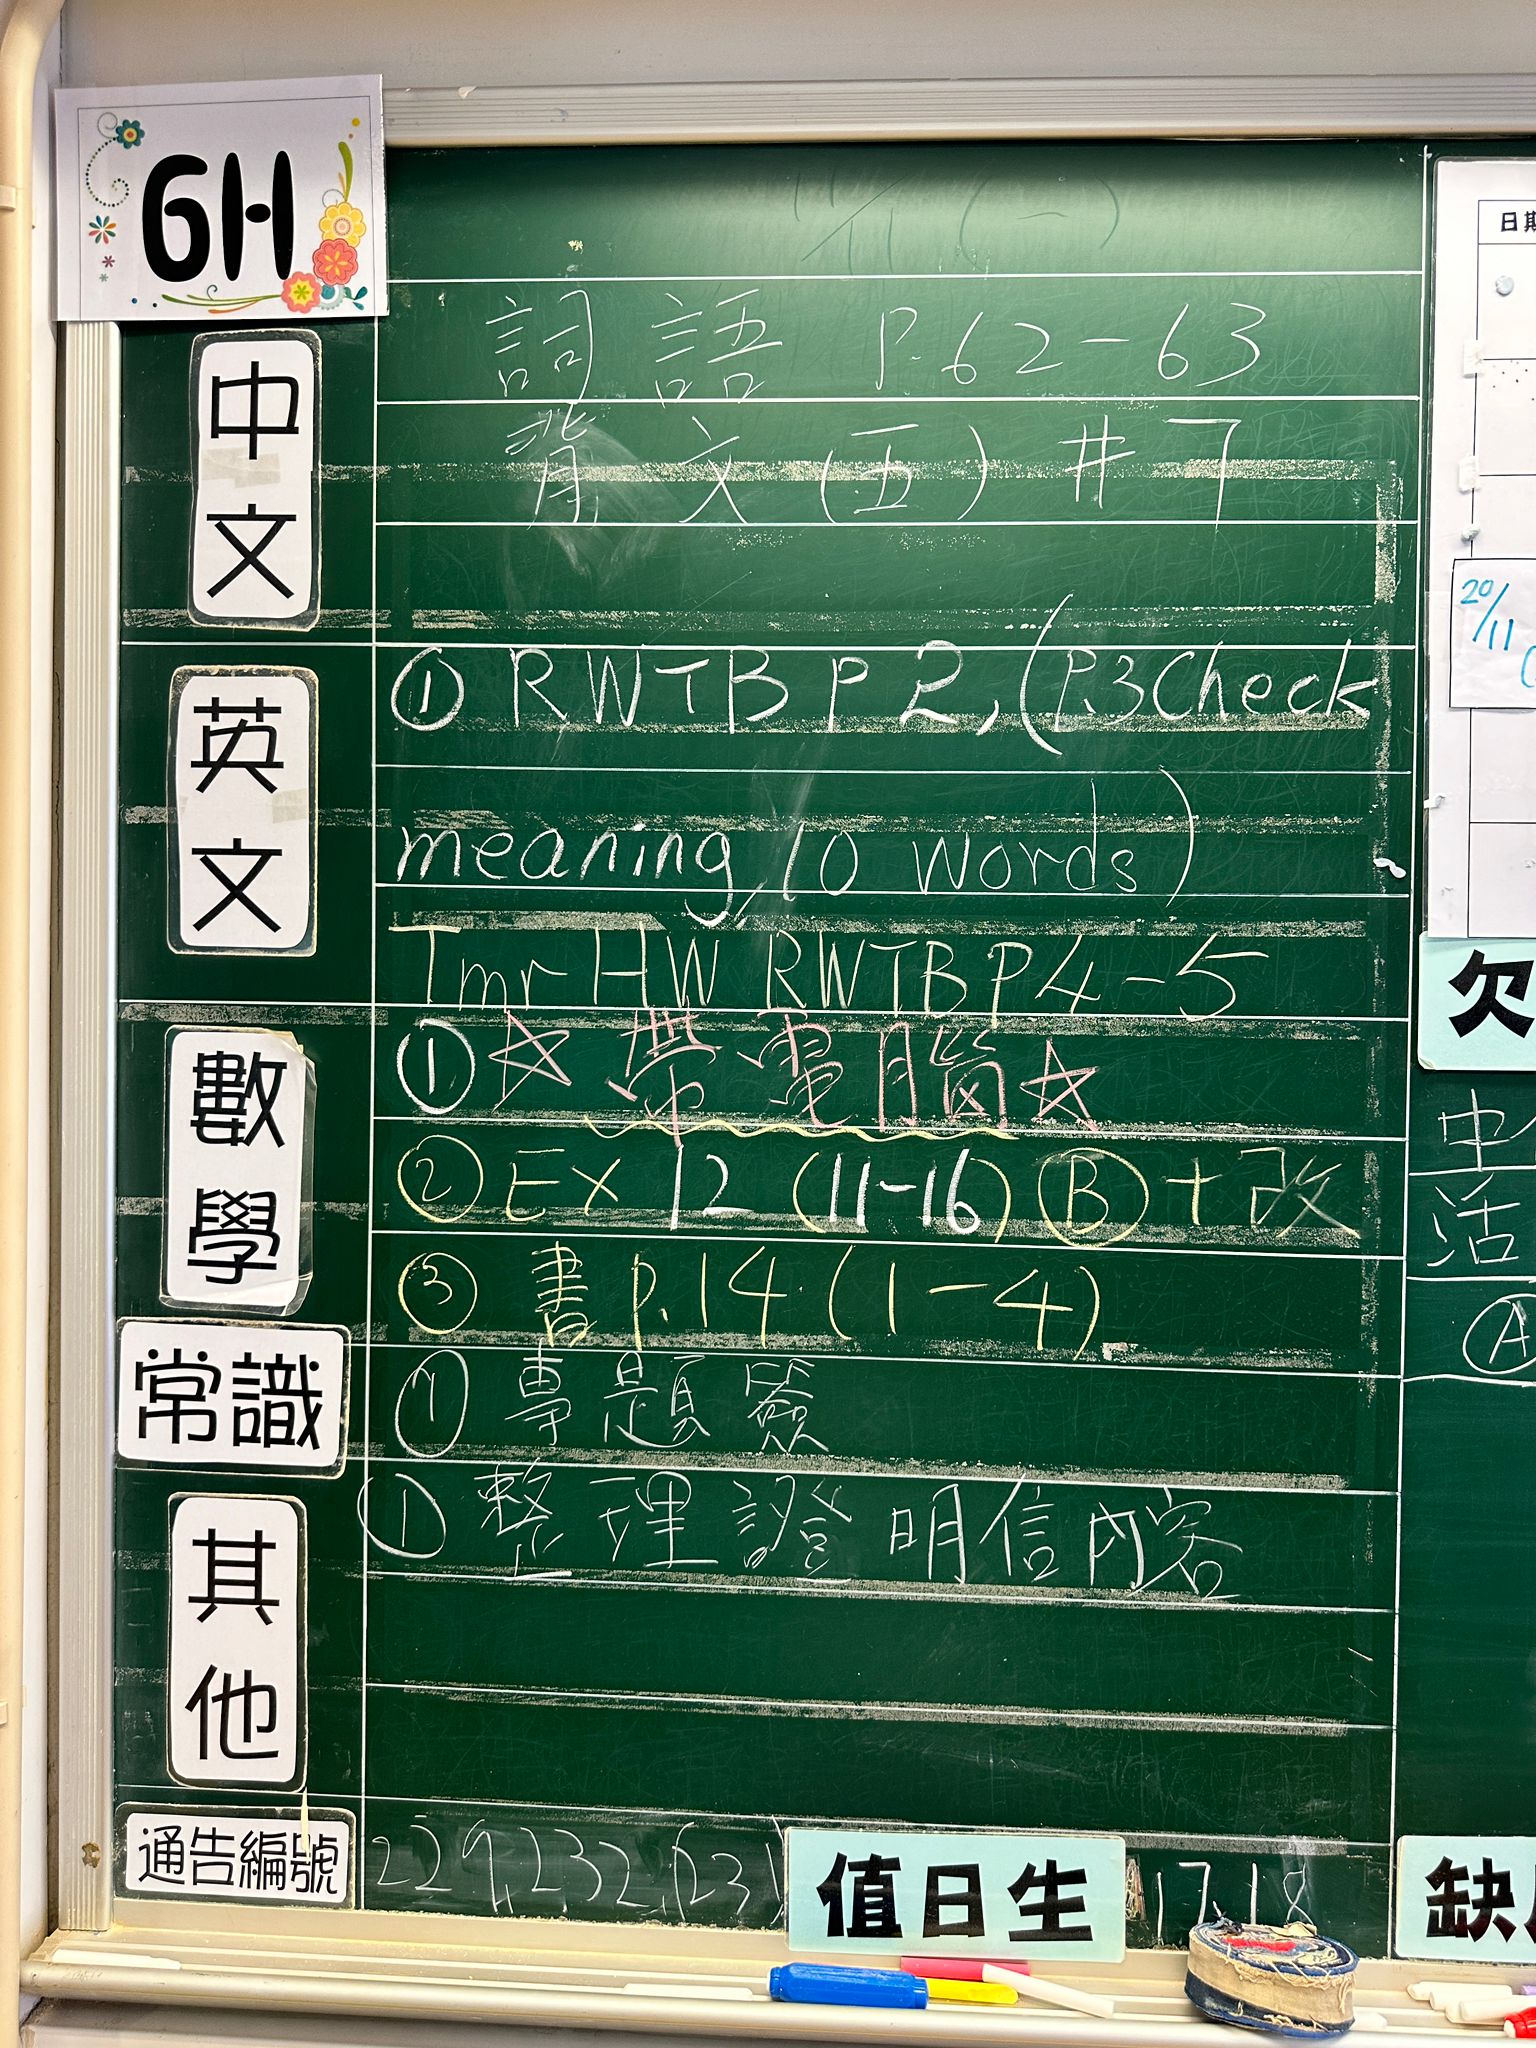 6H
11/11 (一)
中文
詞語 P.62-63
背文(五) #7
英文
① RWTB P2, (P.3 Check
meaning, 10 words)
Tmr HW RWTB P4-5
數學
① ☆ 帶電腦 ☆
② Ex 12 (11-16) Ⓑ + 改
③ 書 p.14 (1-4)
常識
① 專題
其他
① 整理證明信內容
通告編號
229, 232, (231
值日生
17, 18
日期
20/11
欠
中
活
Ⓐ
缺